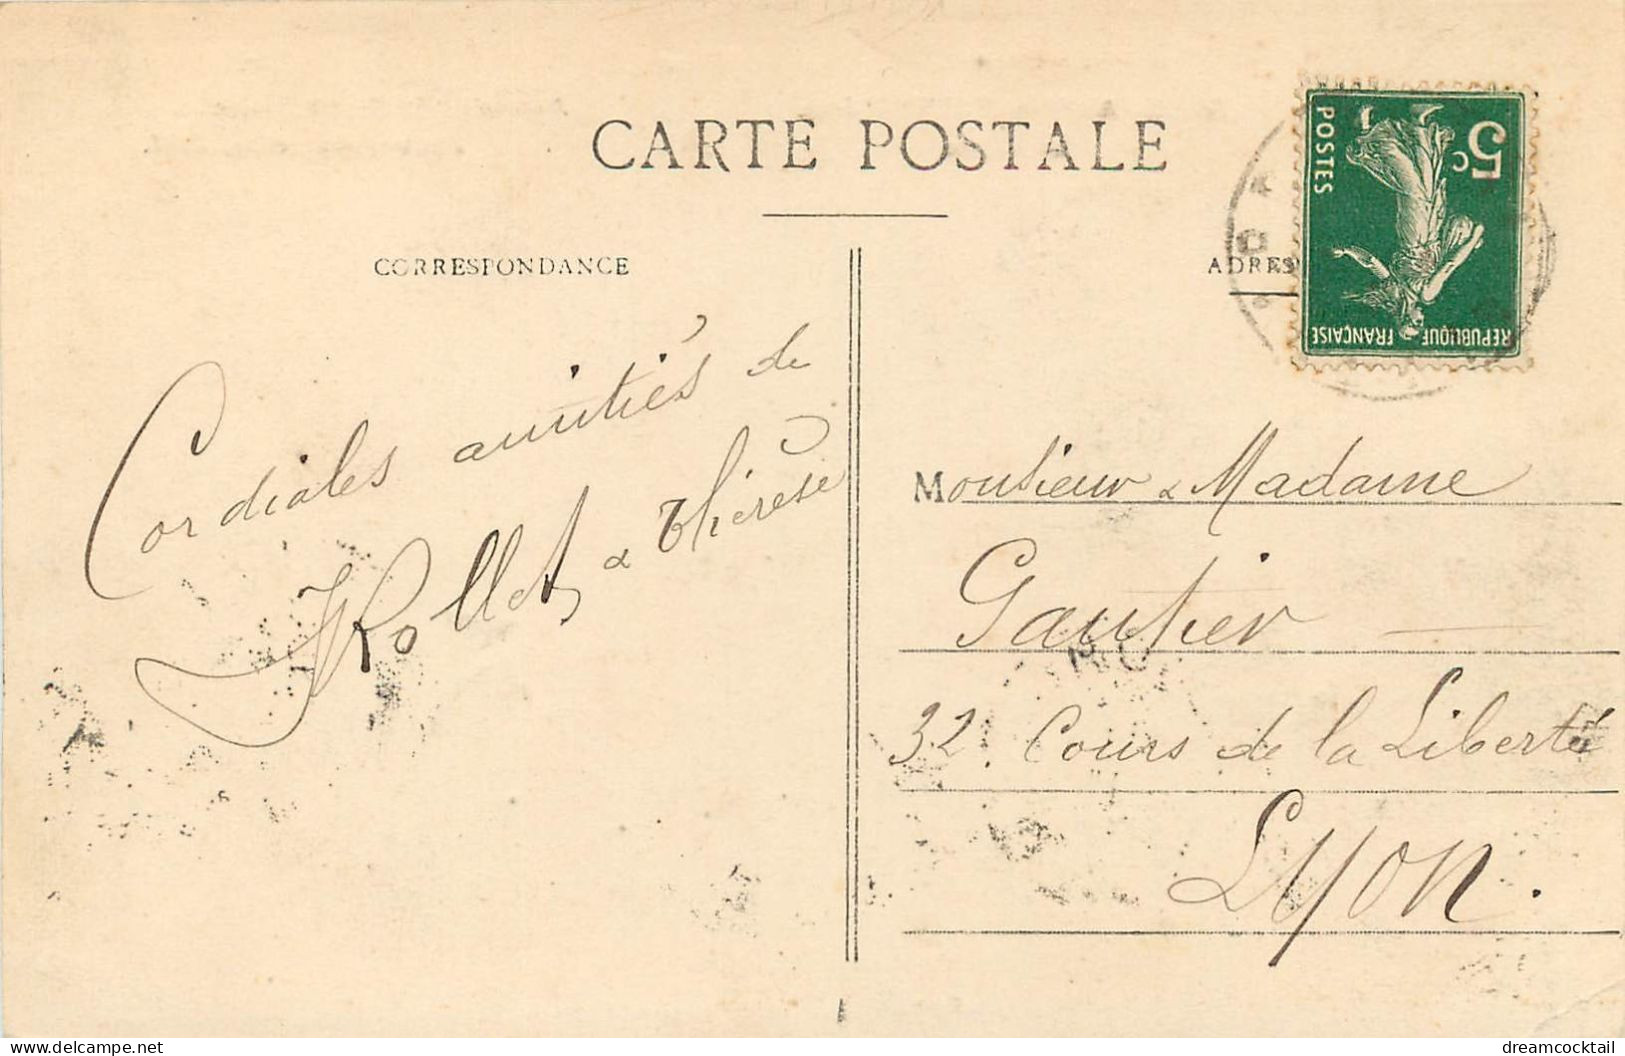 CARTE POSTALE
CORRESPONDANCE
ADRES
5c
POSTES
REPUBLIQUE FRANÇAISE
Cordiales amitiés de
Rollet & Thérèse
Monsieur & Madame
Gautier
32. Cours de la Liberté
Lyon.
dreamcocktail